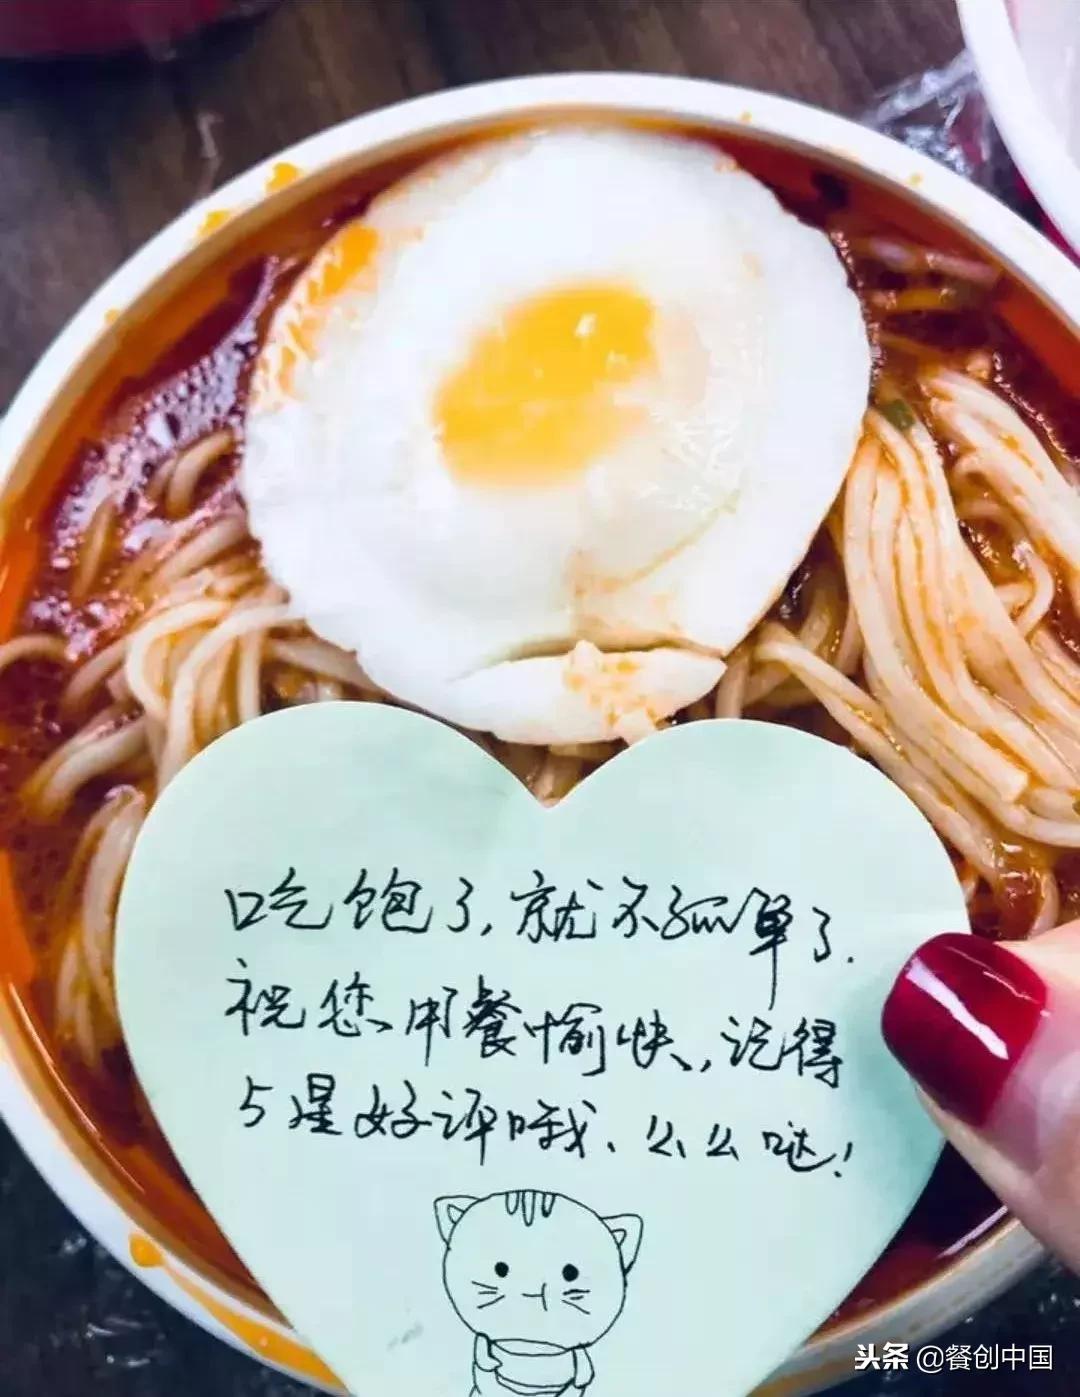 吃饱了,就不孤单了.
祝您用餐愉快,记得
5星好评哦、么么哒!
头条 @餐创中国